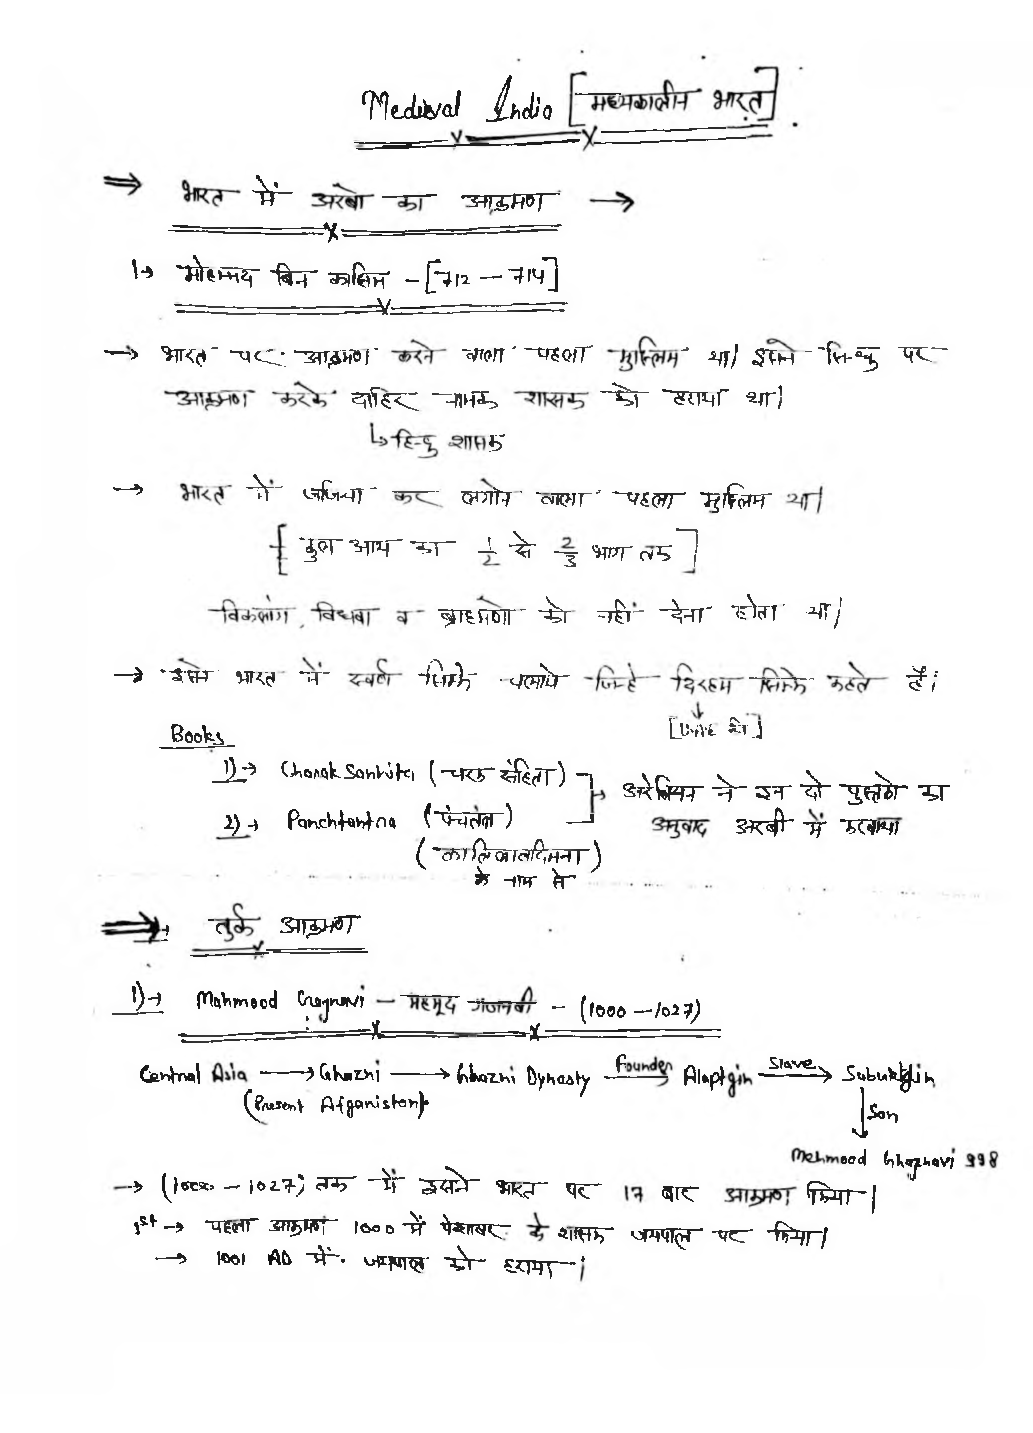 Medieval India [मध्यकालीन भारत]
⇒ भारत में अरबो का आक्रमण →
1→ मोहम्मद बिन कासिम - [712 - 714]
→ भारत पर आक्रमण करने वाला पहला मुस्लिम था। इसने सिन्धु पर
आक्रमण करके दाहिर नामक शासक को हराया था।
↳ हिन्दु शासक
→ भारत में जजिया कर लगाने वाला पहला मुस्लिम था।
[कुल आय का 1/2 से 2/3 भाग तक]
विकलांग, विधवा व ब्राह्मणो को नहीं देना होता था।
→ इसने भारत में स्वर्ण सिक्के चलाये जिन्हे दिरहम सिक्के कहते हैं।
Books
1)→ Charak Sanhita (चरक संहिता)
अरेबियन ने इन दो पुस्तको का
2)→ Panchtantra (पंचतंत्र)
अनुवाद अरबी में करवाया
(कालिलावादिमना)
के नाम से
⇒ तुर्क आक्रमण
1)→ Mahmood Gagnavi - महमूद गजनवी - (1000 - 1027)
Central Asia → Ghazni → Ghazni Dynasty Founder → Alaptgin Slave → Subuktgin
(Present Afganistan)
↓ Son
Mehmood Ghaznavi 998
→ (1000 - 1027) तक में इसने भारत पर 17 बार आक्रमण किया।
1st → पहला आक्रमण 1000 में पेशावर के शासक जयपाल पर किया।
→ 1001 AD में जयपाल को हराया।